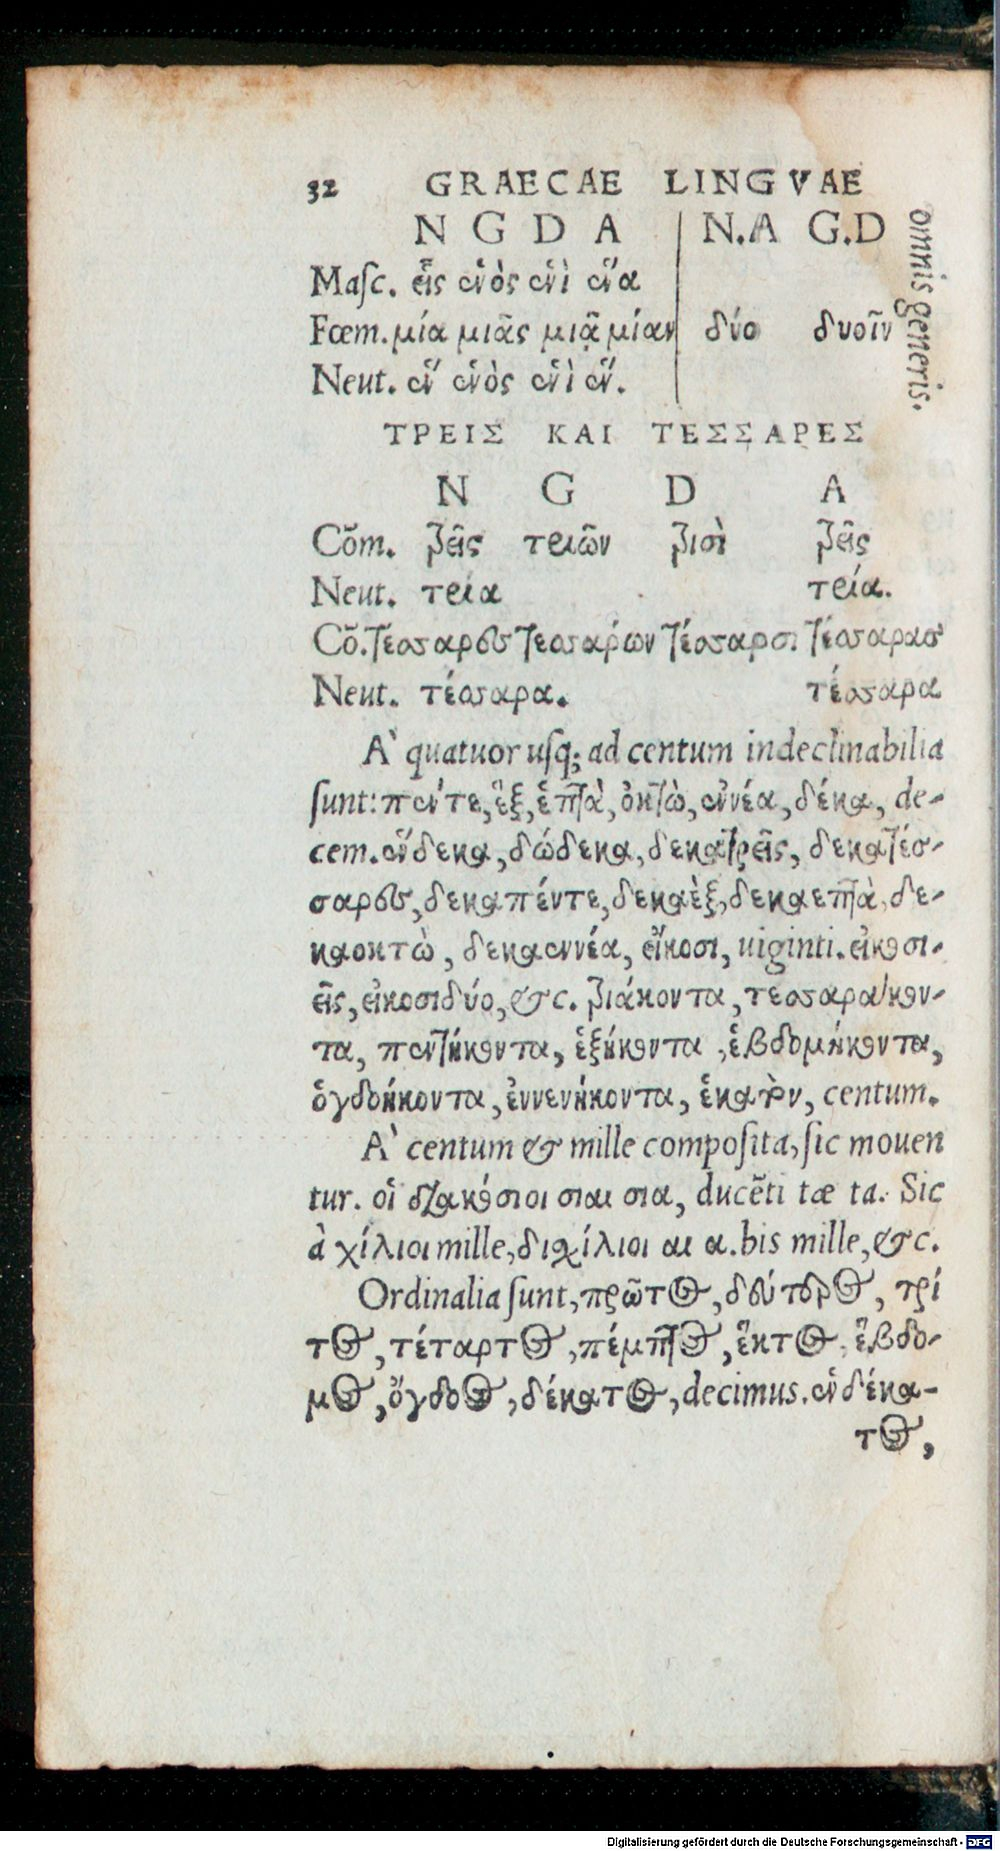 32 GRAECAE LINGVAE
N G D A N.A G.D
Masc. εἷς ἑνὸς ἑνὶ ἕνα
Fœm. μία μιᾶς μιᾷ μίαν δύο δυοῖν
Neut. ἓν ἑνὸς ἑνὶ ἕν.
omnis generis.
ΤΡΕΙΣ ΚΑΙ ΤΕΣΣΑΡΕΣ
N G D A
Cõm. τρεῖς τριῶν τρισὶ τρεῖς
Neut. τρία τρία.
Cõ. τέσσαρες τεσσάρων τέσσαρσι τέσσαρας
Neut. τέσσαρα. τέσσαρα
A` quatuor usq; ad centum indeclinabilia
ſunt: πέντε, ἓξ, ἑπτὰ, ὀκτὼ, ἐννέα, δέκα, de-
cem. ἕνδεκα, δώδεκα, δεκατρεῖς, δεκατέσ-
σαρες, δεκαπέντε, δεκαὲξ, δεκαεπτὰ, δε-
καοκτὼ, δεκαεννέα, εἴκοσι, uiginti. εἰκοσι-
εῖς, εἰκοσιδύο, &c. τριάκοντα, τεσσαράκον-
τα, πεντήκοντα, ἑξήκοντα, ἑβδομήκοντα,
ὀγδοήκοντα, ἐννενήκοντα, ἑκατὸν, centum.
A` centum & mille compoſita, ſic mouen
tur. οἱ διακόσιοι σιαι σια, ducẽti tæ ta. Sic
à χίλιοι mille, διχίλιοι αι α. bis mille, &c.
Ordinalia ſunt, πρῶτος, δεύτερος, τρί
τος, τέταρτος, πέμπτος, ἕκτος, ἕβδο-
μος, ὄγδοος, δέκατος, decimus. ἑνδέκα-
τος,
Digitalisierung gefördert durch die Deutsche Forschungsgemeinschaft - DFG